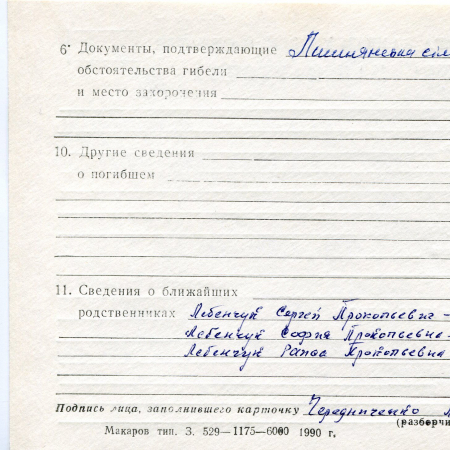 6. Документы, подтверждающие
обстоятельства гибели
и место захоронения
10. Другие сведения
о погибшем
11. Сведения о ближайших
родственниках Лебенчук Сергей Прокопьевич -
Лебенчук София Прокопьевна -
Лебенчук Раиса Прокопьевна
Подпись лица, заполнившего карточку Чередниченко
(разборчи
Макаров тип. З. 529—1175—6000 1990 г.